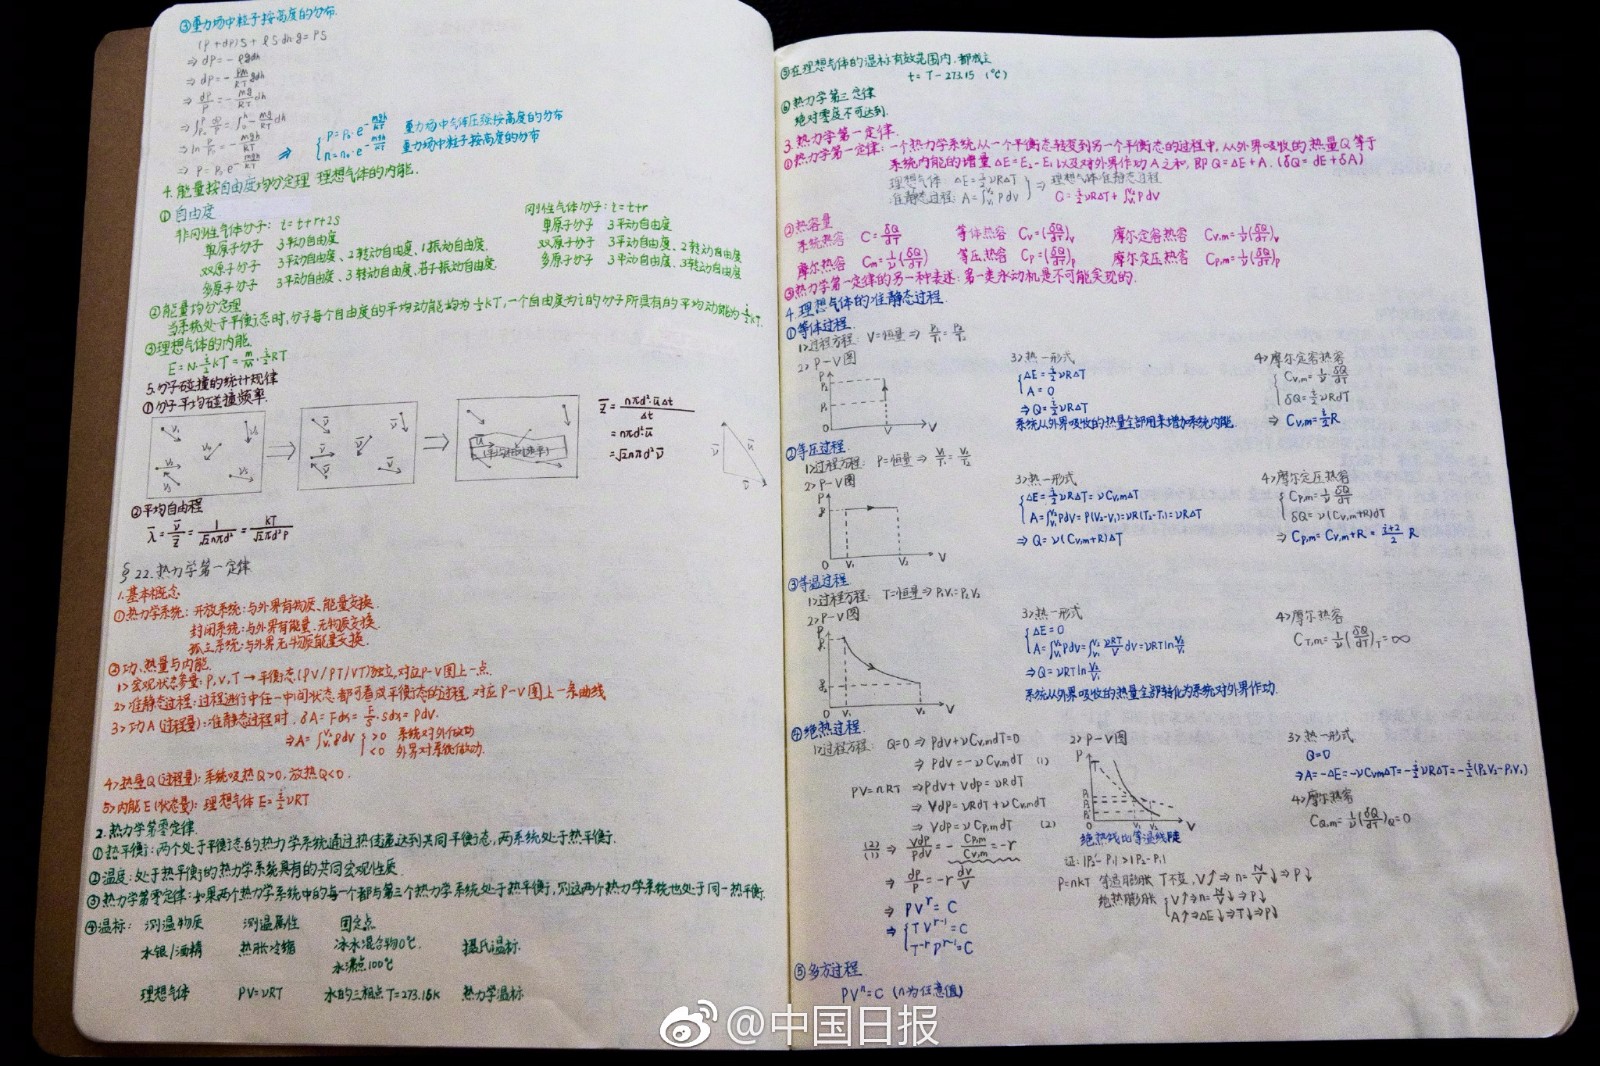 ③重力场中粒子按高度的分布.
(P+dP)S+ρSdhg=PS
⇒dP=-ρgdh
⇒dP=-Pm/kT gdh
⇒dP/P=-mg/kT dh
⇒∫P₀^P dP/P=∫₀^h-mg/kT dh
⇒ln P/P₀=-mgh/kT
⇒P=P₀e^-mgh/kT
⇒ {P=P₀·e^-mgh/kT 重力场中气体压强按高度的分布
n=n₀·e^-mgh/kT 重力场中粒子按高度的分布
4.能量按自由度均分定理 理想气体的内能.
①自由度
非刚性气体分子: i=t+r+2s
单原子分子 3平动自由度
双原子分子 3平动自由度、2转动自由度、1振动自由度.
多原子分子 3平动自由度、3转动自由度、若干振动自由度.
刚性气体分子: i=t+r
单原子分子 3平动自由度
双原子分子 3平动自由度、2转动自由度
多原子分子 3平动自由度、3转动自由度
②能量均分定理
当系统处于平衡态时,分子每个自由度的平均动能均为½kT,一个自由度为i的分子所具有的平均动能为i/2kT.
③理想气体的内能.
E=N·i/2kT=m/M·i/2RT
5.分子碰撞的统计规律
①分子平均碰撞频率.
Z̄=nπd²·ūΔt/Δt
=nπd²·ū
=√2nπd²v̄
②平均自由程
λ̄=v̄/Z̄=1/√2nπd²=kT/√2πd²P
§22.热力学第一定律
1.基本概念
①热力学系统:开放系统:与外界有物质、能量交换.
封闭系统:与外界有能量、无物质交换.
孤立系统:与外界无物质能量交换.
②功、热量与内能.
1>宏观状态参量:P,V,T→平衡态(PV/PT/VT)独立,对应P-V图上一点.
2>准静态过程:过程进行中任一中间状态都可看成平衡态的过程,对应P-V图上一条曲线
3>功A(过程量):准静态过程时,δA=Fds=F/S·Sds=PdV.
⇒A=∫V₁^V₂ PdV {>0 系统对外作功
<0 外界对系统做功.
4>热量Q(过程量):系统吸热Q>0,放热Q<0.
5>内能E(状态量):理想气体E=i/2νRT
2.热力学第零定律.
①热平衡:两个处于平衡态的热力学系统通过热传递达到共同平衡态,两系统处于热平衡.
②温度:处于热平衡的热力学系统具有的共同宏观性质.
③热力学第零定律:如果两个热力学系统中的每一个都与第三个热力学系统处于热平衡,则这两个热力学系统也处于同一热平衡.
④温标: 测温物质 测温属性 固定点
水银/酒精 热胀冷缩 冰水混合物0℃. 摄氏温标.
水沸点100℃
理想气体 PV=νRT 水的三相点T=273.16K 热力学温标
⑤在理想气体的温标有效范围内,都成立
t=T-273.15 (℃)
⑥热力学第三定律
绝对零度不可达到.
3.热力学第一定律.
①热力学第一定律:一个热力学系统从一个平衡态转变到另一个平衡态的过程中,从外界吸收的热量Q等于
系统内能的增量ΔE=E₂-E₁以及对外界作功A之和,即Q=ΔE+A.(δQ=dE+δA)
理想气体 ΔE=i/2νRΔT
准静态过程:A=∫V₁^V₂ PdV } ⇒ 理想气体准静态过程
Q=i/2νRΔT+∫V₁^V₂ PdV
②热容量
系统热容 C=δQ/dT 等体热容 Cv=(δQ/dT)v 摩尔定容热容 Cv,m=1/ν(δQ/dT)v
摩尔热容 Cm=1/ν(δQ/dT) 等压热容 Cp=(δQ/dT)p 摩尔定压热容 Cp,m=1/ν(δQ/dT)p
③热力学第一定律的另一种表述:第一类永动机是不可能实现的.
4.理想气体的准静态过程.
①等体过程.
1>过程方程: V=恒量⇒P₁/T₁=P₂/T₂
2>P-V图
3>热一形式
{ΔE=i/2νRΔT
A=0
⇒Q=i/2νRΔT
系统从外界吸收的热量全部用来增加系统内能.
4>摩尔定容热容
{Cv,m=1/ν δQ/dT
δQ=i/2νRdT
⇒Cv,m=i/2R
②等压过程.
1>过程方程: P=恒量⇒V₁/T₁=V₂/T₂
2>P-V图
3>热一形式
{ΔE=i/2νRΔT=νCv,mΔT
A=∫V₁^V₂ PdV=P(V₂-V₁)=νR(T₂-T₁)=νRΔT
⇒Q=ν(Cv,m+R)ΔT
4>摩尔定压热容
{Cp,m=1/ν δQ/dT
δQ=ν(Cv,m+R)dT
⇒Cp,m=Cv,m+R=i+2/2 R
③等温过程
1>过程方程: T=恒量⇒P₁V₁=P₂V₂
2>P-V图
3>热一形式
{ΔE=0
A=∫V₁^V₂ PdV=∫V₁^V₂ νRT/V dV=νRTln V₂/V₁
⇒Q=νRTln V₂/V₁
系统从外界吸收的热量全部转化为系统对外界作功.
4>摩尔热容
CT,m=1/ν(δQ/dT)T=∞
④绝热过程.
1>过程方程: Q=0⇒PdV+νCv,mdT=0
⇒PdV=-νCv,mdT (1)
PV=νRT ⇒PdV+VdP=νRdT
⇒VdP=νRdT+νCv,mdT
⇒VdP=νCp,mdT (2)
(2)/(1) ⇒VdP/PdV=-Cp,m/Cv,m=-r
⇒dP/P=-r dV/V
⇒PV^r=C
⇒{TV^r-1=C
T^-rP^r-1=C
2>P-V图
绝热线比等温线陡
证:|P₂'-P₁|>|P₂-P₁|
P=nkT 等温膨胀 T不变,V↑⇒n=N/V↓⇒P↓
绝热膨胀 {V↑⇒n=N/V↓⇒P↓
A↑⇒ΔE↓⇒T↓⇒P↓
3>热一形式
Q=0
⇒A=-ΔE=-νCv,mΔT=-i/2νRΔT=-i/2(P₂V₂-P₁V₁)
4>摩尔热容
CQ,m=1/ν(δQ/dT)Q=0
⑤多方过程
PVⁿ=C (n为任意值)
@中国日报